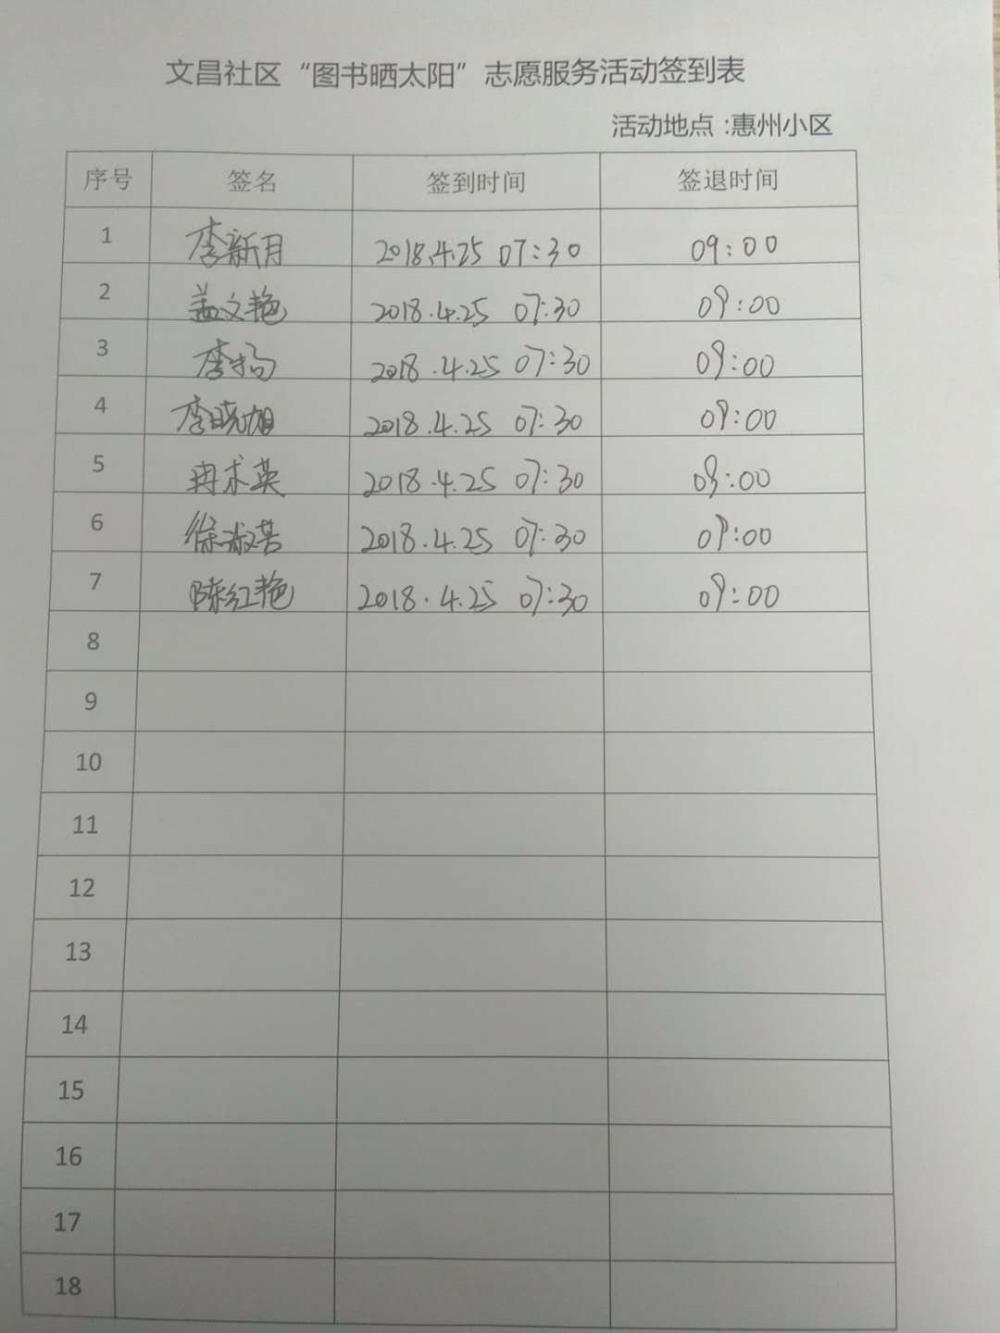 文昌社区“图书晒太阳”志愿服务活动签到表
活动地点:惠州小区
序号 签名 签到时间 签退时间
1 李新月 2018.4.25 07:30 09:00
2 孟文艳 2018.4.25 07:30 09:00
3 李杨 2018.4.25 07:30 09:00
4 李晓旭 2018.4.25 07:30 09:00
5 冉术英 2018.4.25 07:30 09:00
6 徐淑芸 2018.4.25 07:30 09:00
7 陈红艳 2018.4.25 07:30 09:00
8
9
10
11
12
13
14
15
16
17
18